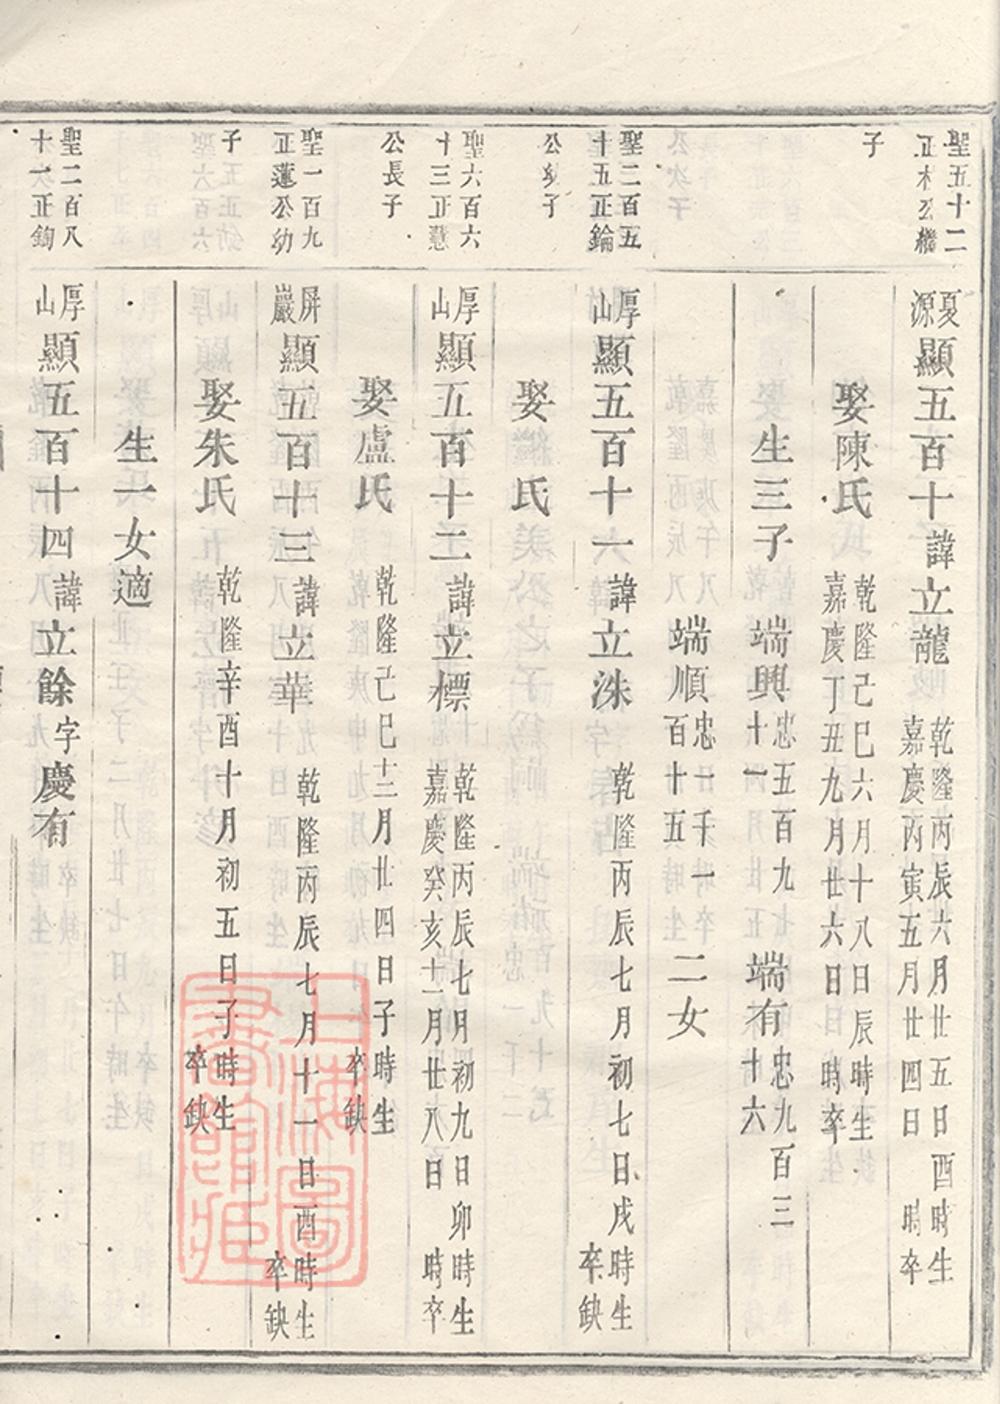 聖五十二
正木公繼
子
夏源顯五百十諱立龍 乾隆丙辰六月廿五日酉時生
嘉慶丙寅五月廿四日 時卒
娶陳氏 乾隆己巳六月十八日辰時生
嘉慶丁丑九月廿六日 時卒
生三子 端興忠五百九七十一 端有忠九百三十六
端順忠一千一百十五 二女
聖二百五
十五正錀
公幼子
厚山顯五百十一諱立洙 乾隆丙辰七月初七日戌時生
卒缺
娶 氏
聖六百六
十三正慧
公長子
厚山顯五百十二諱立標 乾隆丙辰七月初九日卯時生
嘉慶癸亥十一月廿八日 時卒
娶盧氏 乾隆己巳十二月廿四日子時生
卒缺
聖一百九
正蓮公幼
子
屏巖顯五百十三諱立華 乾隆丙辰七月十一日酉時生
卒缺
娶朱氏 乾隆辛酉十月初五日子時生
卒缺
生一女適
聖二百八
十一正鉤
厚山顯五百十四諱立餘字慶有
上海圖書館藏